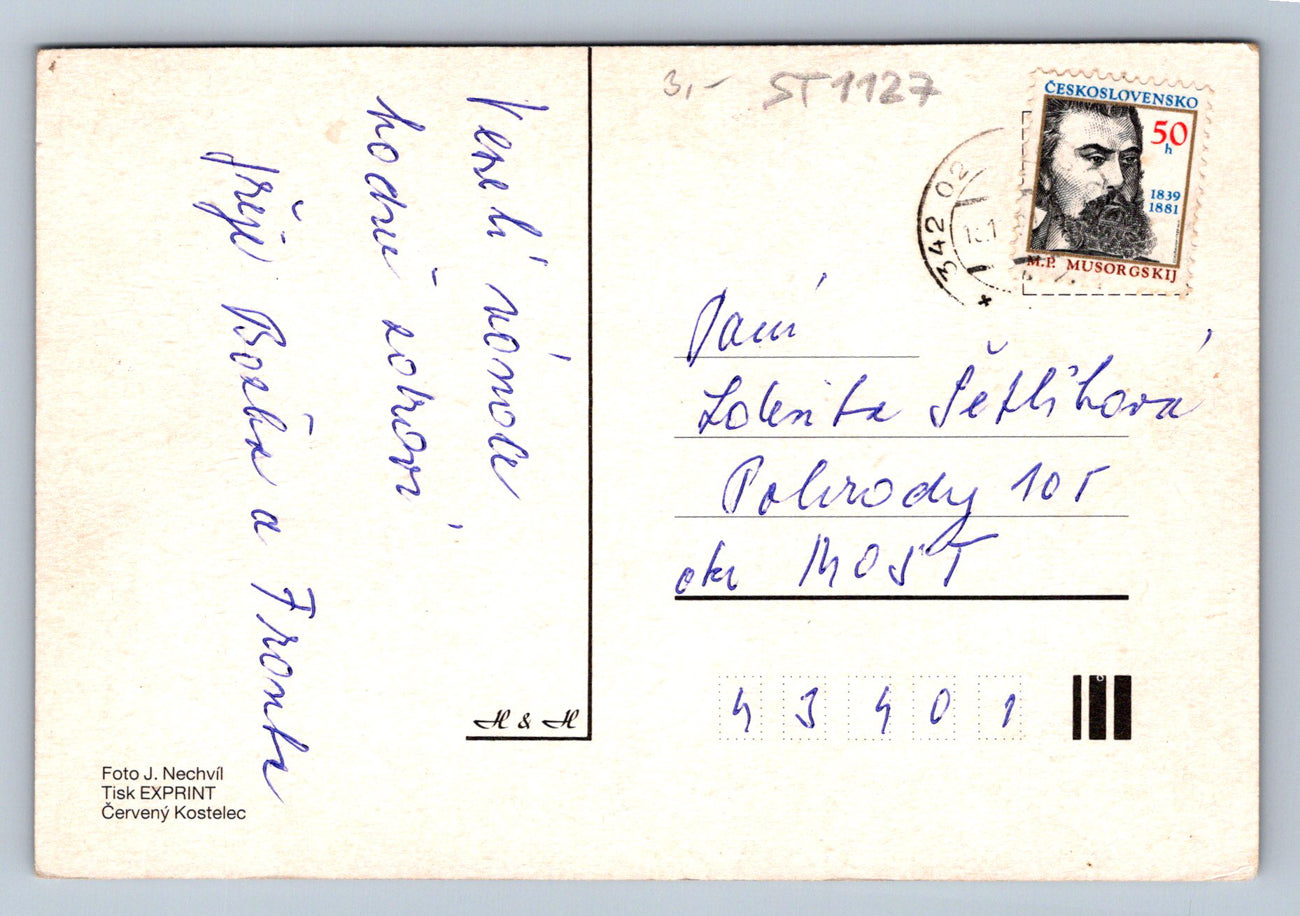 Veselé vánoce
hodně zdraví
přeje Božka a Franta
H & H
Foto J. Nechvíl
Tisk EXPRINT
Červený Kostelec
3,- ST1127
ČESKOSLOVENSKO
50
h
1839
1881
M.P. MUSORGSKIJ
* 342 02
Paní
Šetlíková
Polerady 105
okr MOST
43401